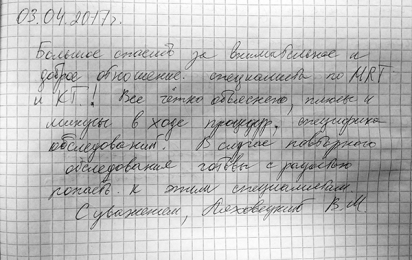 03.04.2017г.
Большое спасибо за внимательное и
доброе отношение специалиста по MRT
и КТ! Все чётко объяснено, плюсы и
минусы в ходе процедур, специфика
обследований. В случае повторного
обследования готовы с радостью
попасть к этим специалистам.
С уважением, Ляховецкий В.М.